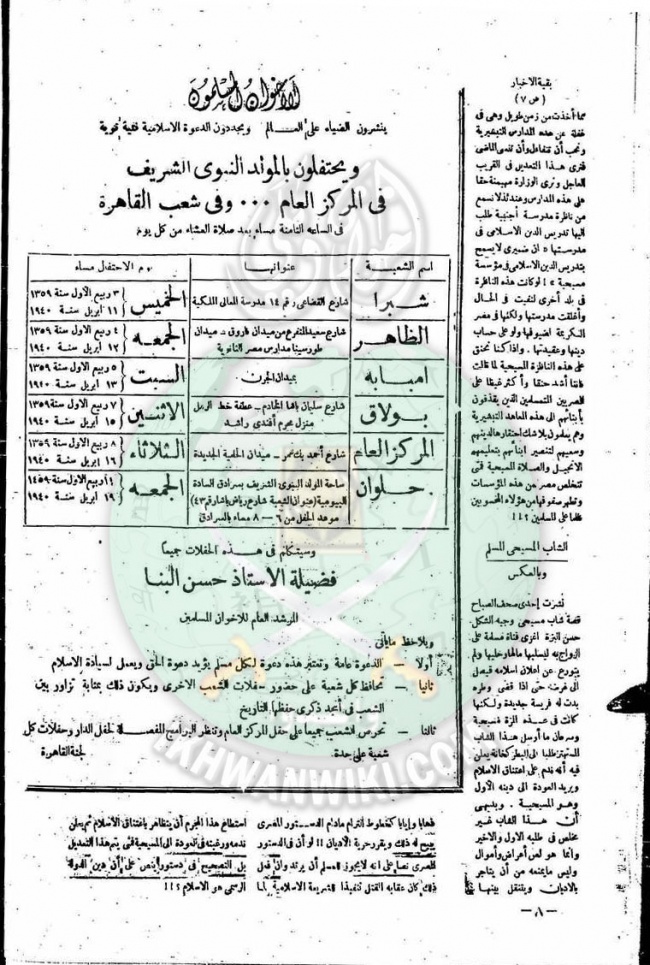 بقية الأخبار
( ص ٧ )
مما أخذت من زمن طويل وهى فى
غفلة عن هذه المدارس التبشيرية
ونحب أن نتفاءل وأن ننسى الماضى
فنرى هذا التعديل فى القريب
العاجل ونرى الوزارة مهيمنة حقا
على هذه المدارس وعندئذ لا نسمع
من ناظرة مدرسة أجنبية طلب
اليها تدريس الدين الاسلامى فى
مدرستها « ان ضميرى لا يسمح
بتدريس الدين الاسلامى فى مؤسسة
مسيحية » ! لو كانت هذه الناظرة
فى بلد أخرى لنفيت فى الحال
وأغلقت مدرستها ولكنها فى مصر
الكريمة لضيوفها ولو على حساب
دينها وعقيدتها . واذا كنا نحنق
على هذه الناظرة المسيحية لما قالت
فاننا أشد حنقا وأكثر غيظا على
المصريين المسلمين الذين يقذفون
بأبنائهم الى هذه المعاهد التبشيرية
وهم يعلمون بلا شك احتقارها لدينهم
وسعيهم لتنصير أبنائهم بتعليمهم
الانجيل والصلاة المسيحية فمتى
تتخلص مصر من هذه المؤسسات
وتطهر صفوفها من هؤلاء المحسوبين
ظلما على المسلمين ؟!!
الشاب المسيحى المسلم
وبالعكس
نشرت إحدى صحف الصباح
قصة شاب مسيحى وجيه الشكل
حسن البزة أغرى فتاة مسلمة على
الزواج به ليسلبها مالها وحليها ولم
يتورع عن اعلان اسلامه ليصل
الى غرضه حتى اذا قضى وطره
بدت له فريسة جديدة ولكنها
كانت فى هذه المرة مسيحية
وسرعان ما أرسل هذا الشاب
المستهتر طلبا الى البطركخانة يعلن
فيه أنه ندم على اعتناق الاسلام
ويريد العودة الى دينه الأول
وهو المسيحية . وبديهى
أن هذا الشاب غير
مخلص فى طلبه الأول والأخير
وانما هو لص أعراض وأموال
وليس ما يمنعه من أن يتاجر
بالأديان ويتنقل بينها
الاخوان المسلمون
ينشرون الضياء على العــالم ويجددون الدعوة الاسلامية فتية قوية
ويحتفلون بالمولد النبوى الشريف
فى المركز العام ٠٠٠ وفى شعب القاهرة
فى الساعة الثامنة مساء بعد صلاة العشاء من كل يوم
اسم الشعبية عنوانها يوم الاحتفال مساء
شبرا شارع القضاعى رقم ١٤ مدرسة المعالى الملكية الخميس ٣ ربيع الأول سنة ١٣٥٩
١١ أبريل سنة ١٩٤٠
الظاهر شارع سعيد المتفرع من ميدان فاروق - ميدان الجمعه ٤ ربيع الأول سنة ١٣٥٩
طور سينا مدارس مصر الثانوية ١٢ أبريل سنة ١٩٤٠
امبابه بميدان الجرن السبت ٥ ربيع الأول سنة ١٣٥٩
١٣ أبريل سنة ١٩٤٠
بولاق شارع سليمان باشا الخادم - عطفة خط الرمل الاثنين ٧ ربيع الأول سنة ١٣٥٩
منزل محرم أفندى راشد ١٥ أبريل سنة ١٩٤٠
المركز العام شارع أحمد بك عمر - ميدان الحلمية الجديدة الثلاثاء ٨ ربيع الأول سنة ١٣٥٩
١٦ أبريل سنة ١٩٤٠
حلوان ساحة المولد النبوى الشريف بسرادق السادة الجمعه ١١ ربيع الأول سنة ١٣٥٩
البيومية (عنوان الشعبة شارع رياض باشا رقم ٤٣) ١٩ أبريل سنة ١٩٤٠
موعد الحفل من ٦ - ٨ مساء بالسرادق
وسيتكلم فى هذه الحفلات جميعا
فضيلة الأستاذ حسن البنا
المرشد العام للاخوان المسلمين
ويلاحظ مايأتى
أولا — الدعوة عامة وتعتبر هذه دعوة لكل مسلم يؤيد دعوة الحق ويعمل لسيادة الاسلام
ثانيا — تحافظ كل شعبة على حضور حفلات الشعب الاخرى ويكون ذلك بمثابة تزاور بين
الشعب فى أمجد ذكرى حفظها التاريخ
ثالثا — تحرص الشعب جميعا على حفل المركز العام وتنظر البرامج المفصلة لحفل الدار وحفلات كل
شعبة على حدة. لجنة القاهرة
فهابا وإيابا كخطوط الترام مادام الدستور المصرى
يبيح له ذلك ويقرر حرية الأديان !! لو أن فى الدستور
المصرى نصا على انه لا يجوز للمسلم أن يرتد وان فعل
ذلك كان عقابه القتل تنفيذا للشريعة الاسلامية لما
استطاع هذا المجرم أن يتظاهر باعتناق الاسلام ثم يعلن
ندمه ورغبته فى العودة الى المسيحية فمتى يتم هذا التعديل
بل التصحيح فى دستور ينص على أن دين الدولة
الرسمى هو الاسلام ؟!!
— ٨ —
IKHWANWIKI.COM